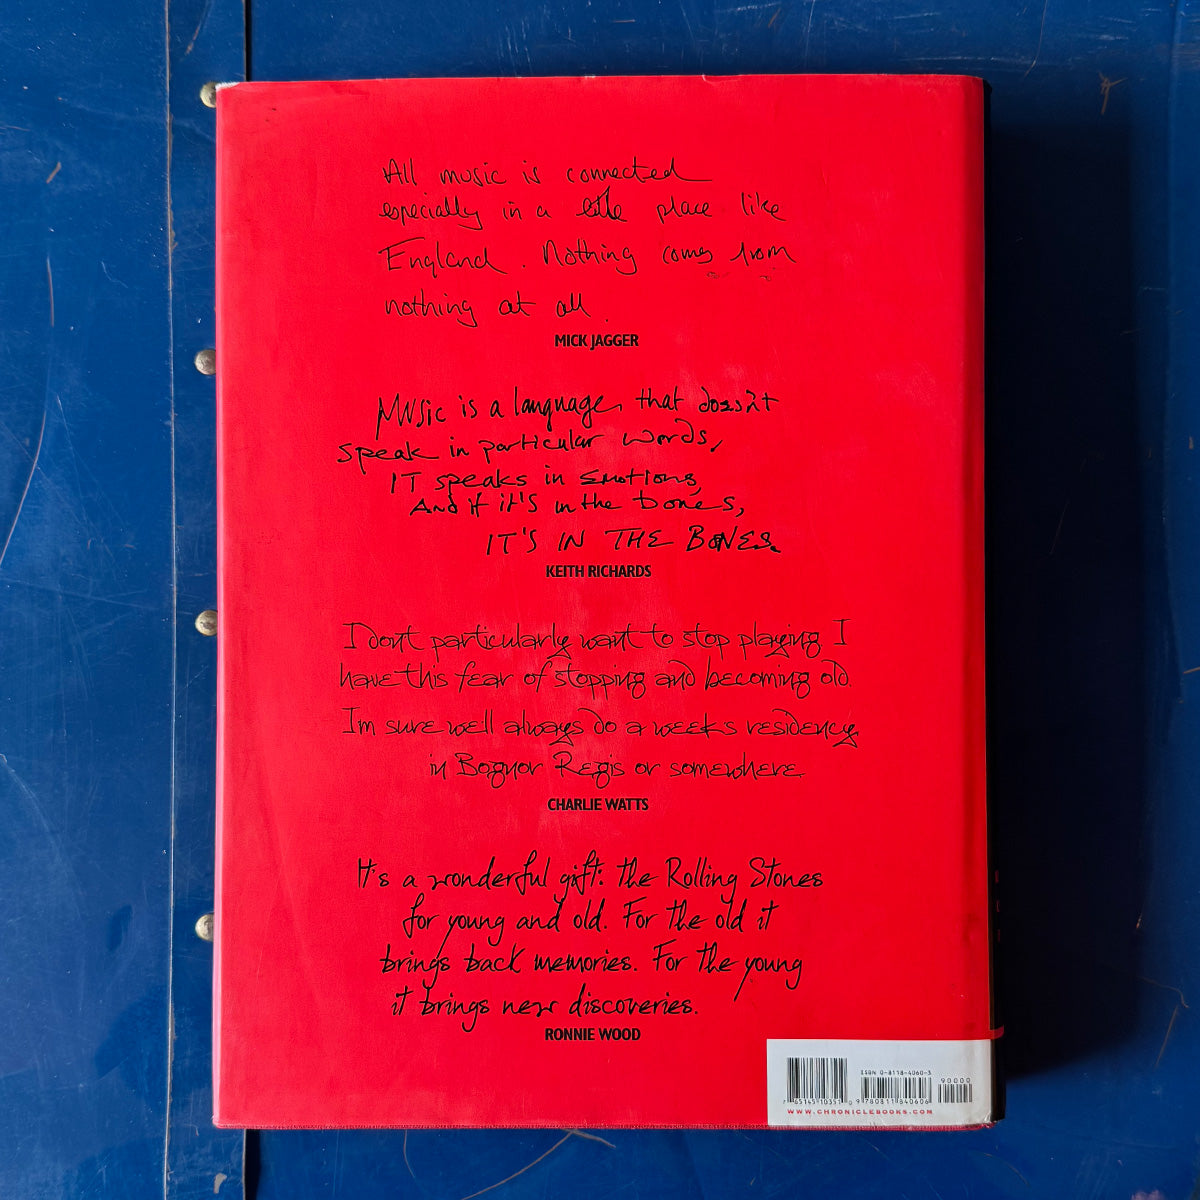 All music is connected
especially in a little place like
England. Nothing comes from
nothing at all.
MICK JAGGER
Music is a language, that doesn't
speak in particular words,
IT speaks in Emotions,
And if it's in the bones,
IT'S IN THE BONES.
KEITH RICHARDS
I dont particularly want to stop playing I
have this fear of stopping and becoming old.
Im sure well always do a weeks residency
in Bognor Regis or somewhere.
CHARLIE WATTS
It's a wonderful gift: the Rolling Stones
for young and old. For the old it
brings back memories. For the young
it brings new discoveries.
RONNIE WOOD
ISBN 0-8118-4060-3
90000
7 65145 10351 0
9 780811 840606
WWW.CHRONICLEBOOKS.COM